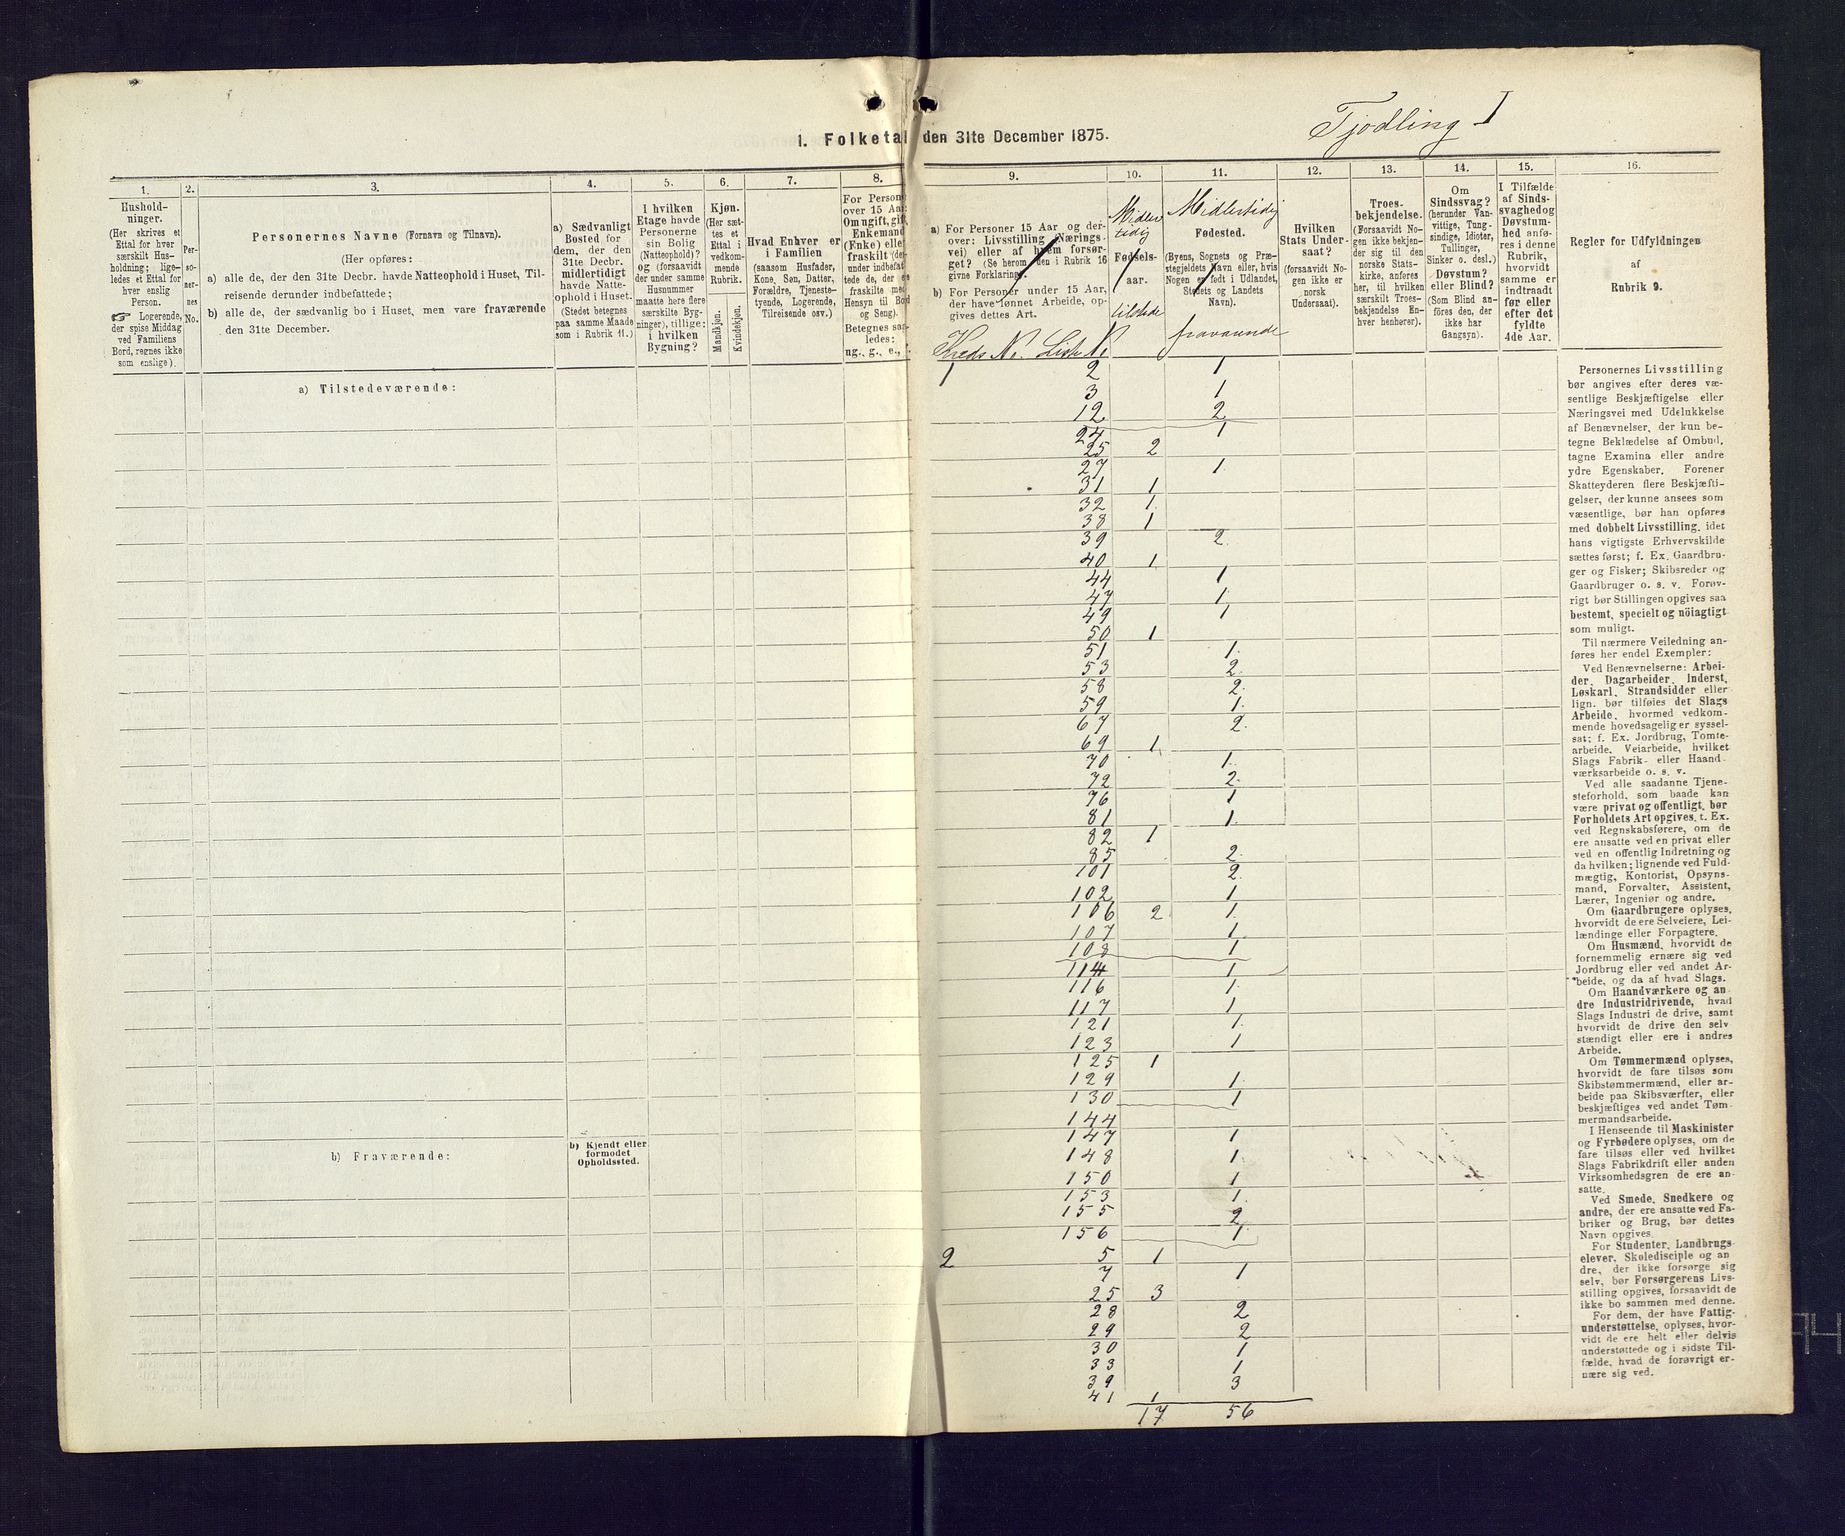 Tjødling I
1. Folketal den 31te December 1875.
1.
Hushold-
ninger.
(Her skrives et
Ettal for hver
særskilt Hus-
holdning; lige-
ledes et Ettal for
hver enslig
Person.
☞ Logerende,
der spise Middag
ved Familiens
Bord, regnes ikke
som enslige).
2.
Per-
so-
ner-
nes
No.
3.
Personernes Navne (Fornavn og Tilnavn).
(Her opføres:
a) alle de, der den 31te Decbr. havde Natteophold i Huset, Til-
reisende derunder indbefattede;
b) alle de, der sædvanlig bo i Huset, men vare fraværende
den 31te December.
4.
a) Sædvanligt
Bosted for
dem, der den
31te Decbr.
midlertidigt
havde Natte-
ophold i Huset.
(Stedet betegnes
paa samme Maade
som i Rubrik 11.)
5.
I hvilken
Etage havde
Personerne
sin Bolig
(Natteophold)?
og (forsaavidt
der under samme
Husnummer
maatte høre flere
særskilte Byg-
ninger), tillige:
i hvilken
Bygning?
6.
Kjøn.
(Her sæt-
tes et
Ettal i
vedkom-
mende
Rubrik.
Mandkjøn.
Kvindekjøn.
7.
Hvad Enhver er
i Familien
(saasom Husfader,
Kone, Søn, Datter,
Forældre, Tjeneste-
tyende, Logerende,
Tilreisende osv.)
8.
For Person
over 15 Aa
Om ugift, gift
Enkemand
(Enke) elle
fraskilt (de
under indbefat
tede de, der e
fraskilte med
Hensyn til Bord
og Seng).
Betegnes saa
ledes:
ug., g., e., f.
9.
a) For Personer 15 Aar og der-
over: Livsstilling (Nærings-
vei) eller af hvem forsør-
get? (Se herom den i Rubrik 16
givne Forklaring).
b) For Personer under 15 Aar,
der have lønnet Arbeide, op-
gives dettes Art.
Kreds No. Liste No
10.
Midler
tidig
Fødsels-
aar.
tilstede
11.
Midlertidig
Fødested.
(Byens, Sognets og Præ-
stegjeldets Navn eller, hvis
Nogen er født i Udlandet,
Stedets og Landets
Navn).
fraværende
12.
Hvilken
Stats Under-
saat?
(forsaavidt No-
gen ikke er
norsk
Undersaat).
13.
Troes-
bekjendelse.
(Forsaavidt No-
gen ikke bekjen-
der sig til den
norske Stats-
kirke, anføres
her, til hvilken
særskilt Troes-
bekjendelse En-
hver henhører).
14.
Om
Sindssvag?
(herunder Van-
vittige, Tung-
sindige, Idioter,
Tullinger,
Sinker o. desl.)
Døvstum?
eller Blind?
(Som Blind an-
føres den, der
ikke har
Gangsyn).
15.
I Tilfælde
af Sinds-
svaghed og
Døvstum-
hed anføres
i denne
Rubrik,
hvorvidt
samme er
indtraadt
før eller
efter det
fyldte
4de Aar.
16.
Regler for Udfyldningen
af
Rubrik 9.
a) Tilstedeværende:
b) Fraværende:
b) Kjendt eller
formodet
Opholdssted.
1 2 1
3 1
12 2
24 1
25 2
27 1
31 1
32 1
38 1
39 2
40 1
44 1
47 1
49 1
50 1
51 1
53 2
58 2
59 1
67 2
69 1
70 1
72 2
76 1
81 1
82 1
85 2
101 2
102 1
106 2 1
107 1
108 1
114 1
116 1
117 1
121 1
123 1
125 1
129 1
130 1
144
147 1
148 1
150 1
153 1
155 2
156 1
2 5 1
7 1
25 3
28 2
29 2
30 1
33 1
39 3
41 1
17 56
Personernes Livsstilling
bør angives efter deres væ-
sentlige Beskjæftigelse eller
Næringsvei med Udelukkelse
af Benævnelser, der kun be-
tegne Beklædelse af Ombud,
tagne Examina eller andre
ydre Egenskaber. Forener
Skatteyderen flere Beskjæfti-
gelser, der kunne ansees som
væsentlige, bør han opføres
med dobbelt Livsstilling, idet
hans vigtigste Erhvervskilde
sættes først; f. Ex. Gaardbru-
ger og Fisker; Skibsreder og
Gaardbruger o. s. v. Forøv-
rigt bør Stillingen opgives saa
bestemt, specielt og nöiagtigt
som muligt.
Til nærmere Veiledning an-
føres her endel Exempler:
Ved Benævnelserne: Arbei-
der, Dagarbeider, Inderst,
Løskarl, Strandsidder eller
lign. bør tilføies det Slags
Arbeide, hvormed vedkom-
mende hovedsagelig er syssel-
sat; f. Ex. Jordbrug, Tomte-
arbeide, Veiarbeide, hvilket
Slags Fabrik- eller Haand-
værksarbeide o. s. v.
Ved alle saadanne Tjene-
steforhold, som baade kan
være privat og offentligt, bør
Forholdets Art opgives, t. Ex.
ved Regnskabsførere, om de
ere ansatte ved en privat eller
ved en offentlig Indretning og
da hvilken; lignende ved Fuld-
mægtig, Kontorist, Opsyns-
mand, Forvalter, Assistent,
Lærer, Ingeniør og andre.
Om Gaardbrugere oplyses,
hvorvidt de ere Selveiere, Lei-
lændinge eller Forpagtere.
Om Husmænd, hvorvidt de
fornemmelig ernære sig ved
Jordbrug eller ved andet Ar-
beide, og da af hvad Slags.
Om Haandværkere og an
dre Industridrivende, hvad
Slags Industri de drive, samt
hvorvidt de drive den selv
stændigt eller ere i andres
Arbeide.
Om Tømmermænd oplyses,
hvorvidt de fare tilsøs som
Skibstømmermænd, eller ar-
beide paa Skibsværfter, eller
beskjæftiges ved andet Tøm-
mermandsarbeide.
I Henseende til Maskinister
og Fyrbødere oplyses, om de
fare tilsøs eller ved hvilket
Slags Fabrikdrift eller anden
Virksomhedsgren de ere an-
satte.
Ved Smede, Snedkere og
andre, der ere ansatte ved Fa-
briker og Brug, bør dettes
Navn opgives.
For Studenter, Landbrugs-
elever, Skoledisciple og an
dre, der ikke forsørge sig
selv, bør Forsørgerens Livs-
stilling opgives, forsaavidt de
ikke bo sammen med denne.
For dem, der have Fattig-
understøttelse, oplyses, hvor-
vidt de ere helt eller delvis
understøttede og i sidste Til-
fælde, hvad de forøvrigt er-
nære sig ved.